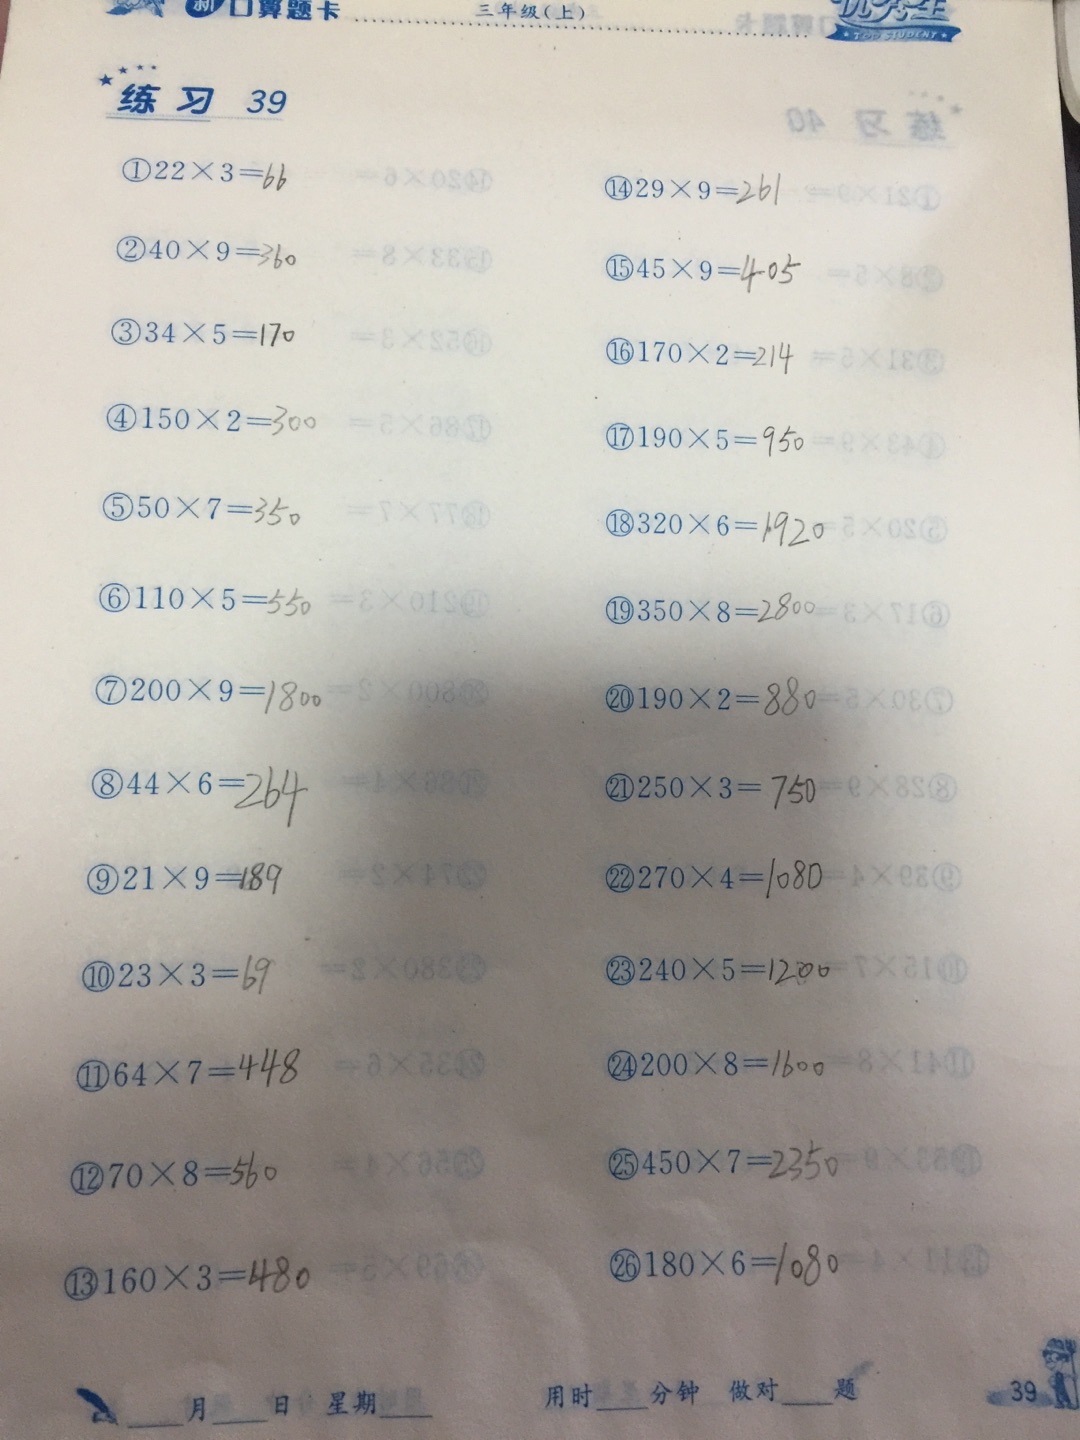 新口算题卡 三年级(上)
TOP STUDENT
练习 39
①22×3=66
②40×9=360
③34×5=170
④150×2=300
⑤50×7=350
⑥110×5=550
⑦200×9=1800
⑧44×6=264
⑨21×9=189
⑩23×3=69
⑪64×7=448
⑫70×8=560
⑬160×3=480
⑭29×9=261
⑮45×9=405
⑯170×2=214
⑰190×5=950
⑱320×6=1920
⑲350×8=2800
⑳190×2=880
㉑250×3=750
㉒270×4=1080
㉓240×5=1200
㉔200×8=1600
㉕450×7=2350
㉖180×6=1080
____月____日 星期____ 用时____分钟 做对____题
39